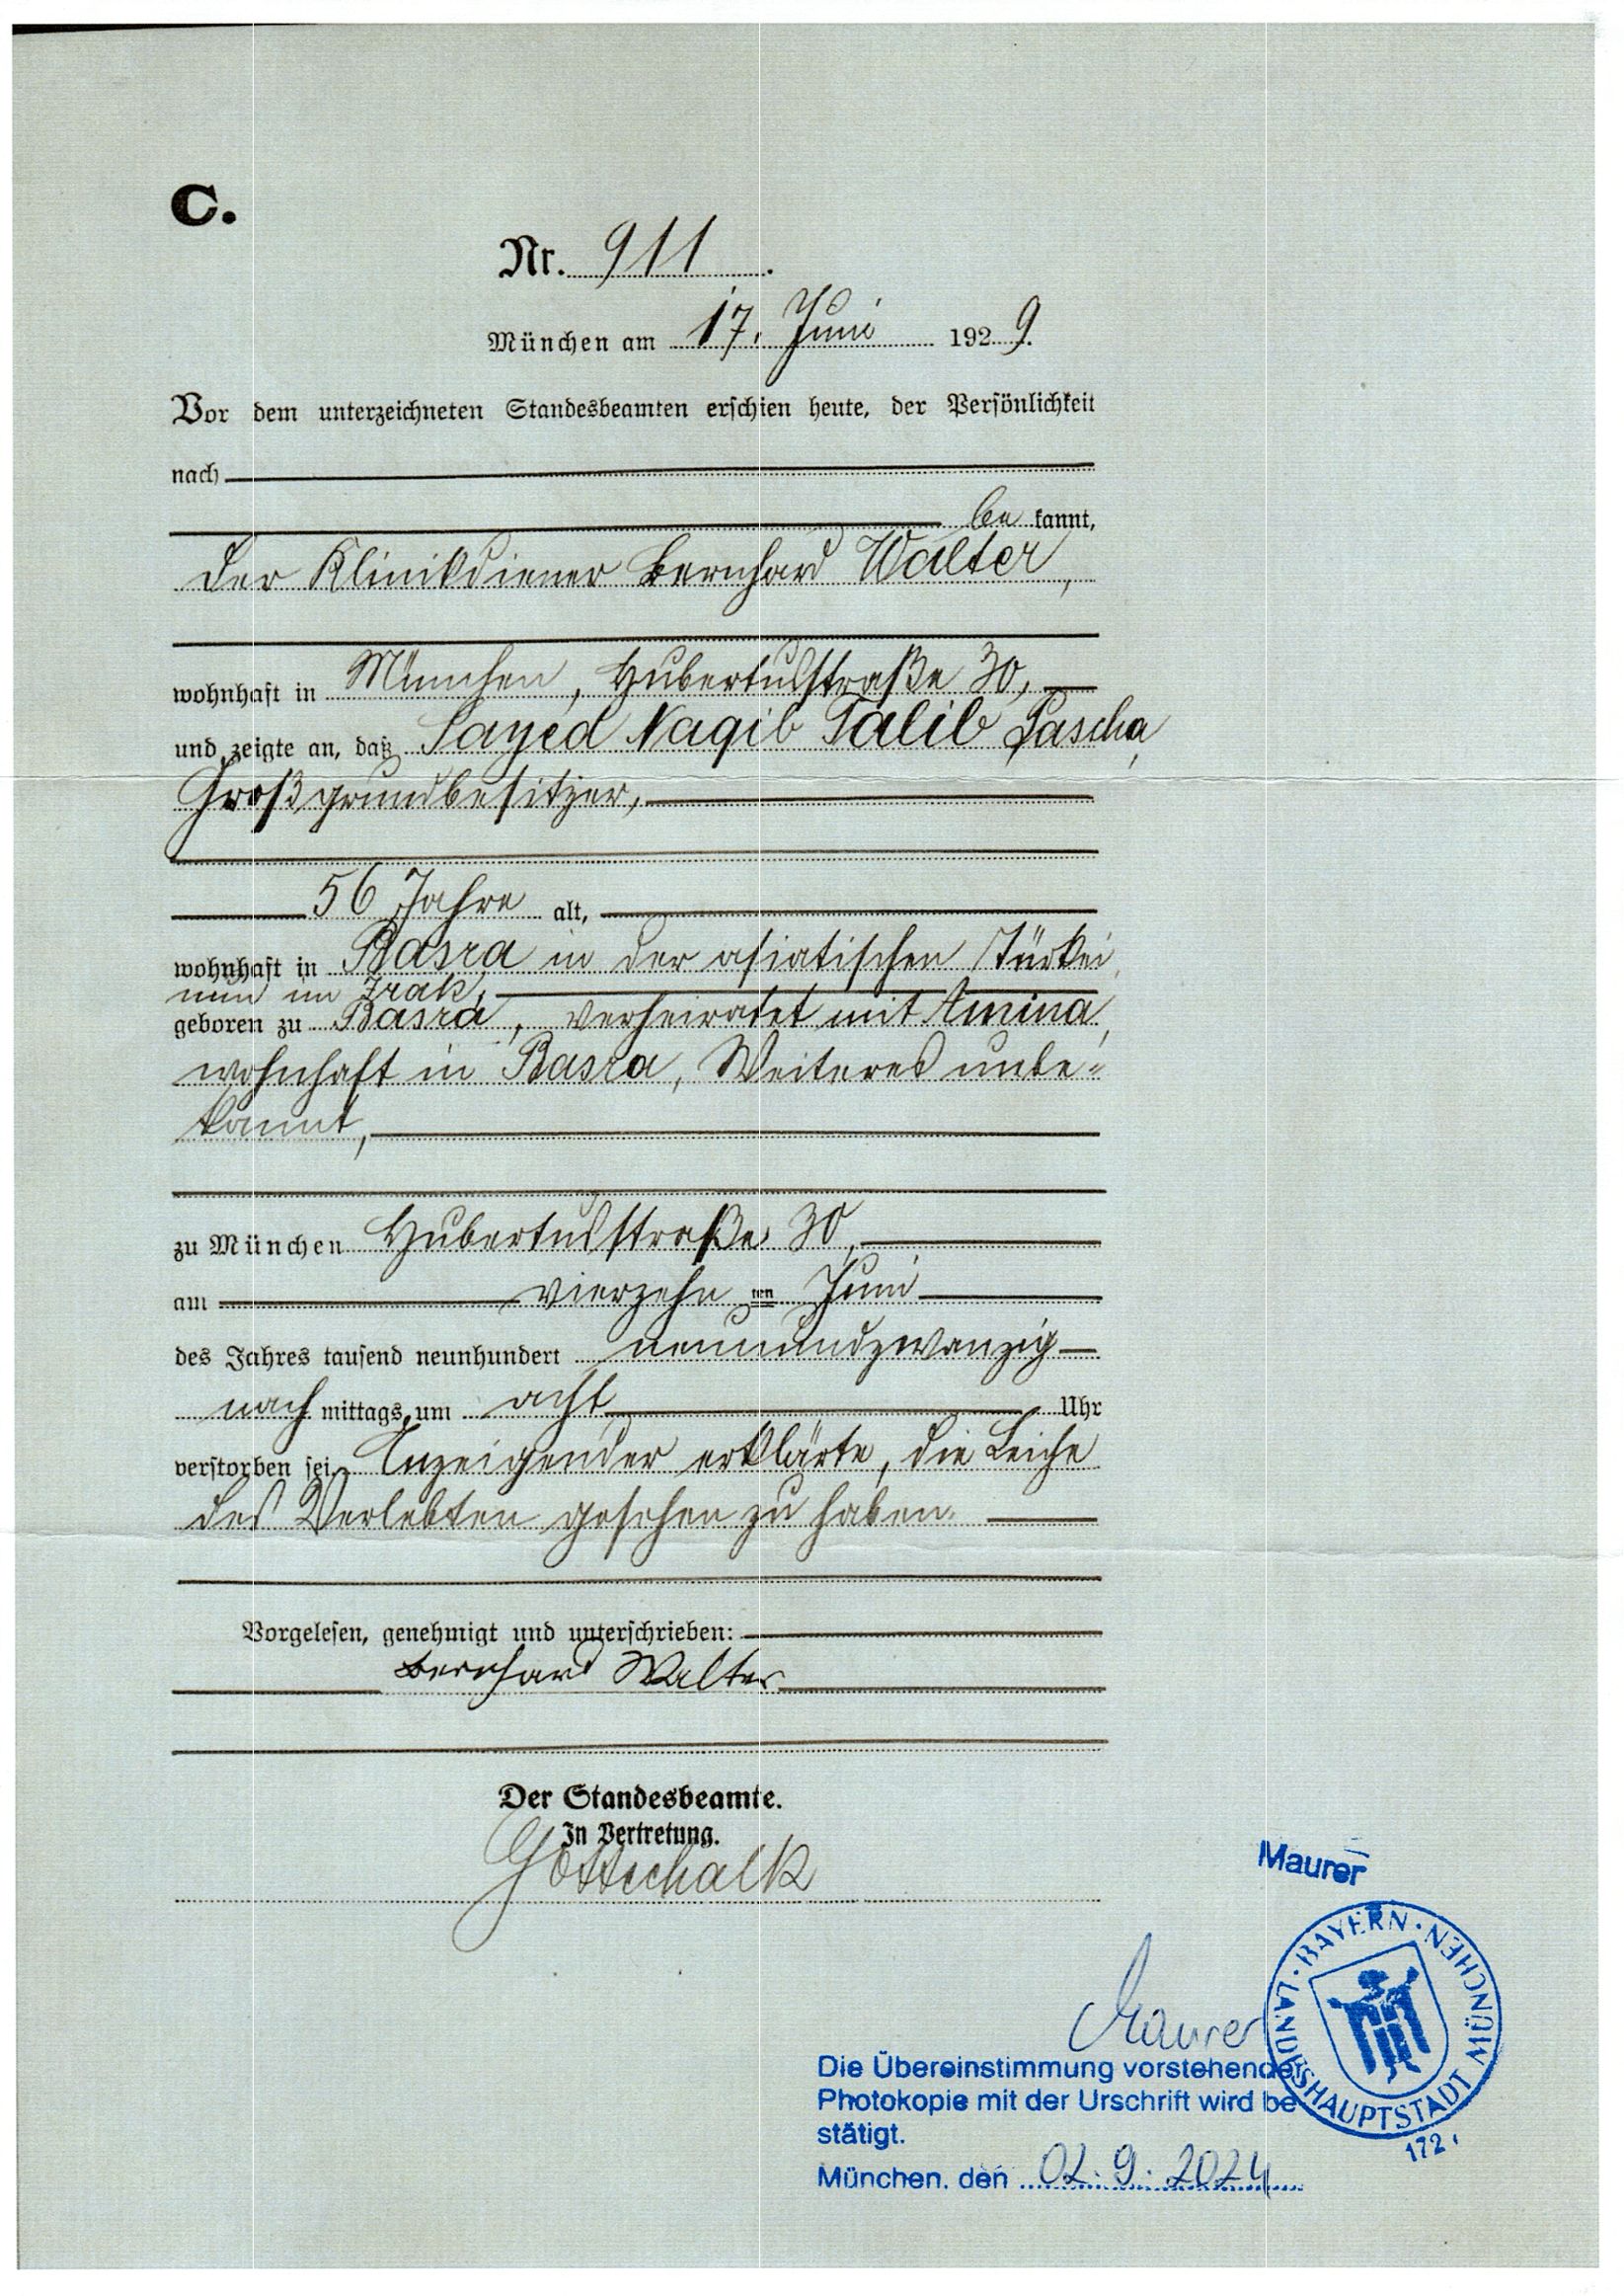 C.
Nr. 911.
München am 17. Juni 1929.
Vor dem unterzeichneten Standesbeamten erschien heute, der Persönlichkeit
nach
be kannt,
der Klinikdiener Bernhard Walter,
wohnhaft in München, Hubertusstraße 30,
und zeigte an, daß Sayed Naqib Talib Pascha,
Großgrundbesitzer,
56 Jahre alt,
wohnhaft in Basra in der asiatischen Türkei,
nun im Irak,
geboren zu Basra, verheiratet mit Amina,
wohnhaft in Basra, Weiteres unbe=
kannt,
zu München Hubertusstraße 30,
am vierzehn ten Juni
des Jahres tausend neunhundert neunundzwanzig
nach mittags um acht Uhr
verstorben sei. Anzeigender erklärte, die Leiche
des Verlebten gesehen zu haben.
Vorgelesen, genehmigt und unterschrieben:
Bernhard Walter
Der Standesbeamte.
In Vertretung.
Gottschalk
Maurer
BAYERN · LANDESHAUPTSTADT MÜNCHEN ·
172
Maurer
Die Übereinstimmung vorstehender
Photokopie mit der Urschrift wird be
stätigt.
München, den 02.9.2024